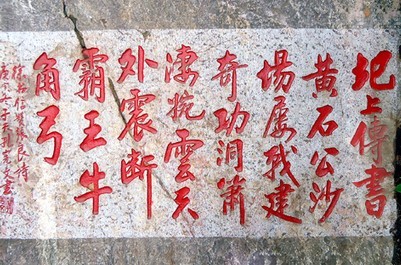 圯上傳書
黄石公沙
場屡战建
奇功洞箫
凄惋雲天
外震断
霸王牛
角弓